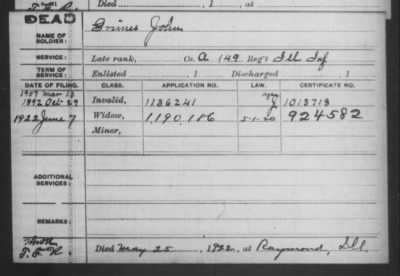 Died , 1 , at
DEAD
NAME OF SOLDIER: Grimes John
SERVICE: Late rank, Co. A 149 Reg't Ill Inf
TERM OF SERVICE: Enlisted , 1 Discharged , 1
DATE OF FILING. CLASS. APPLICATION NO. LAW. CERTIFICATE NO.
1907 Mar 13
1892 Oct 29 Invalid, 1136241 1013713
1922 June 7 Widow, 1,190,186 5-1-20 924582
Minor,
ADDITIONAL SERVICES:
REMARKS:
Died May 25 , 1922, at Raymond, Ill.